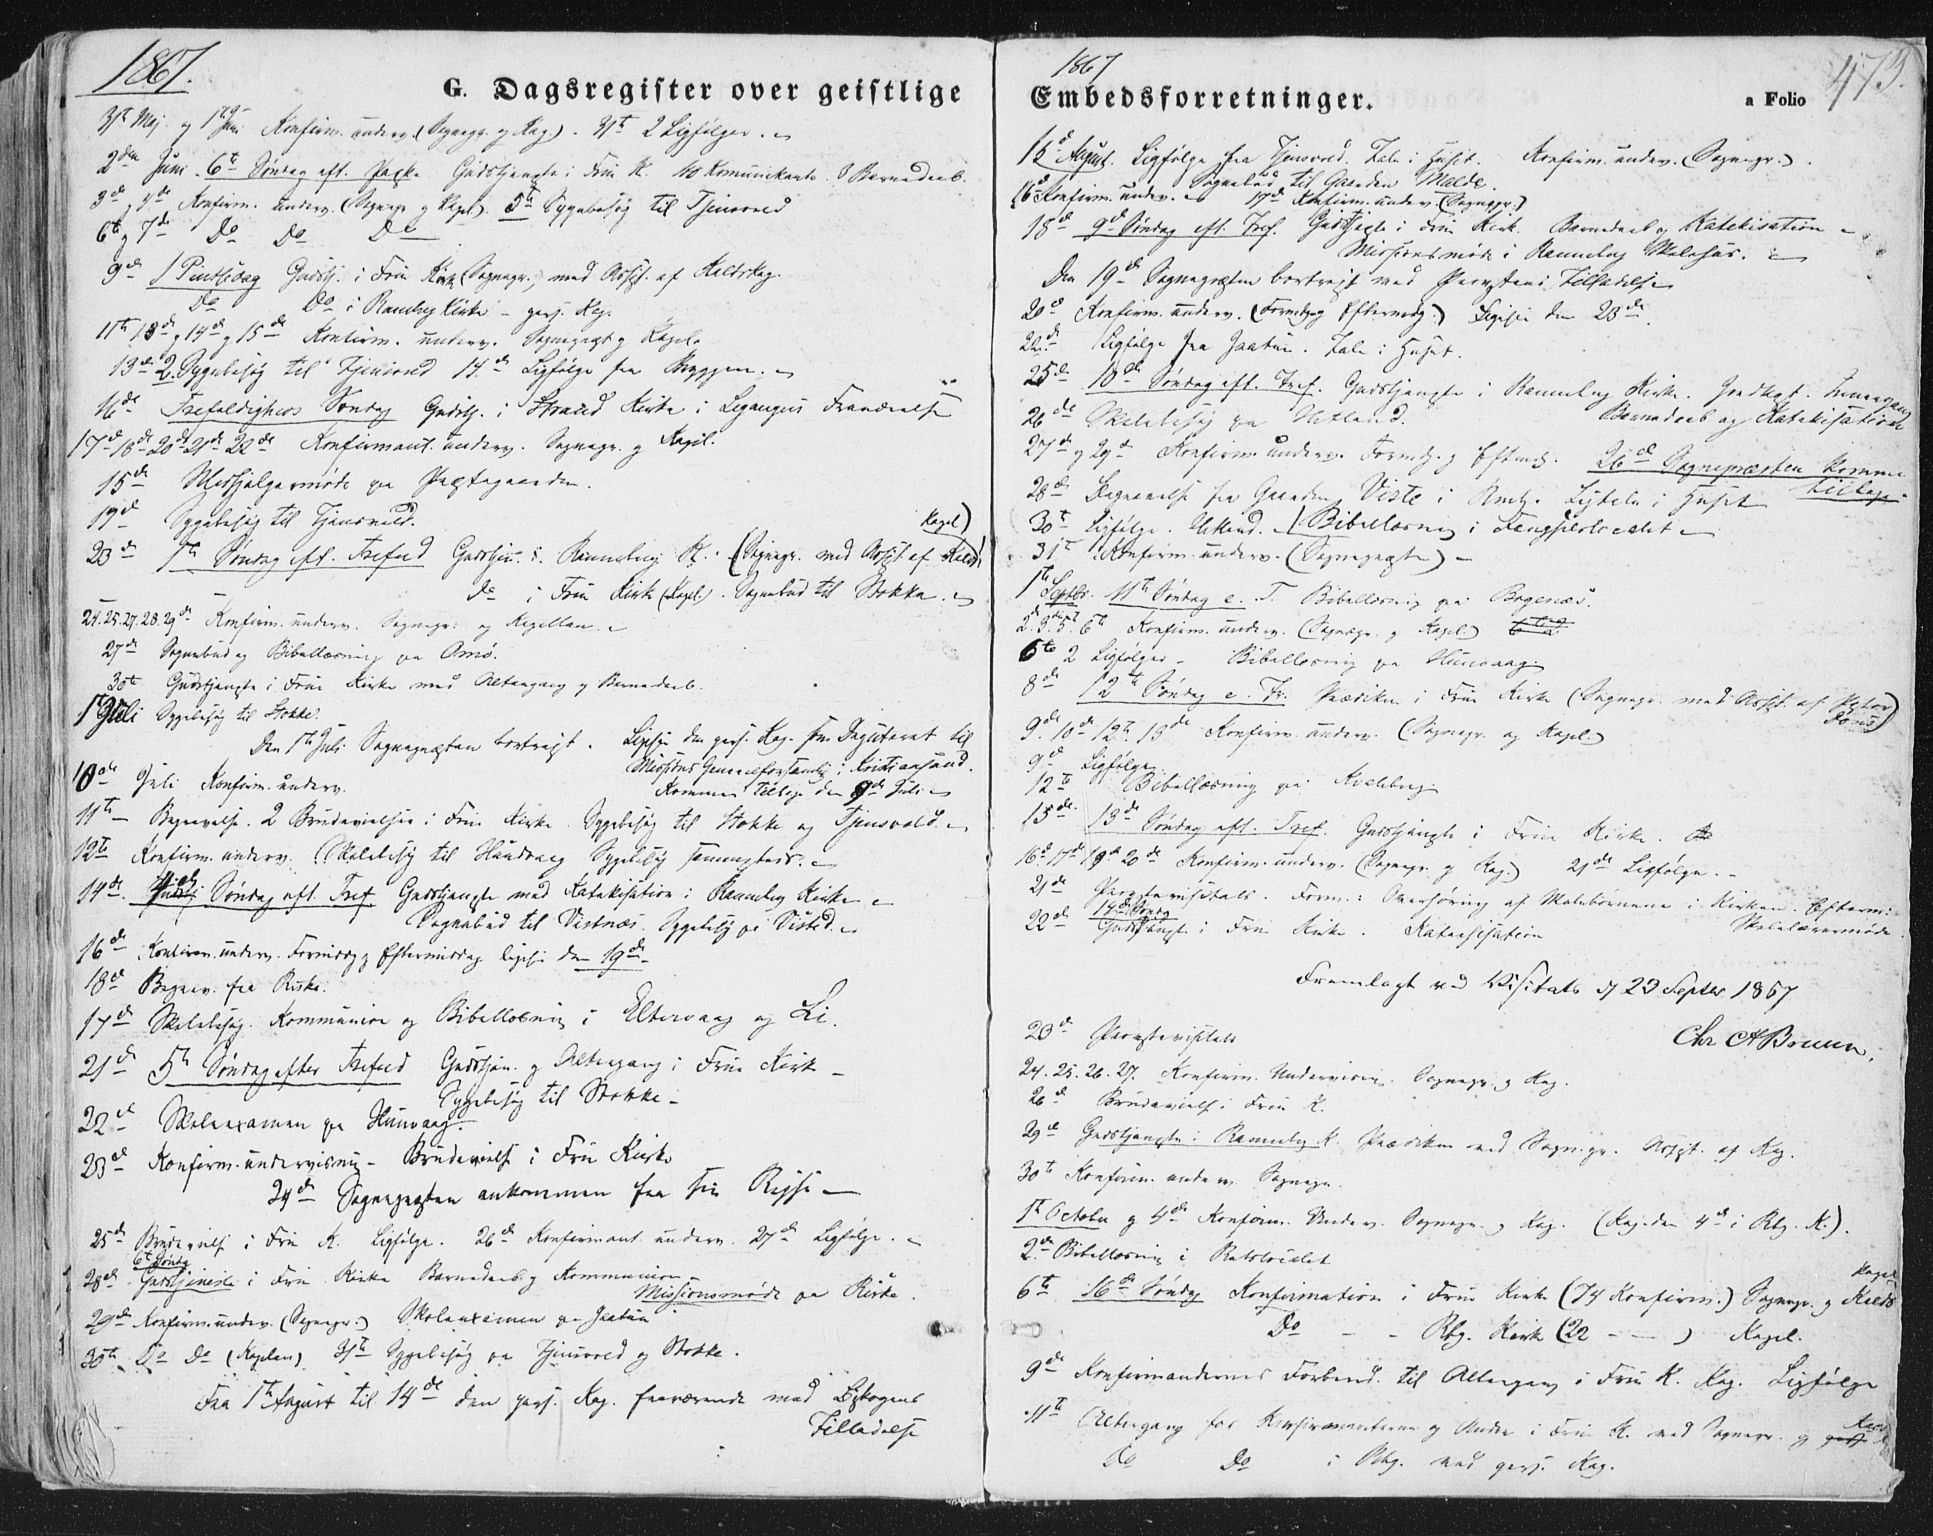 1867.
G. Dagsregister over geistlige
31te Maj og 1te Juni Konfirm. underv. (Sognepr. og Kap.). 31te 2 Ligfølger.
2den Juni. 6te Søndag eft. Paske Gudstjeneste i Frue K. 40 Komunikanter. 8 Barnedaab.
3de og 4de Konfirm. underv. (Sognepr. og Kapel.) 5te Sygebesøg til Tjensvold
6te og 7de Do Do Do
9de 1 Pintsedag Gudstj. i Frue Kirke (Sognepr.) med Assist. af Kaldskap.
Do Do i Randeberg Kirke - pers. Kap.
11te 13de og 14de og 15de Konfirm. underv. Sognepræst og Kapel.
13de 2 Sygebesøg til Tjensvold 14de Ligfølge fra Byggen.
16de Trefoldigheds Søndag Gudstj. i Strand Kirke i Legangers Fraværelse
17de 18de 20de 21de 22de Konfirmant. underv. Sognepr. og Kapel.
15de Missjælpermøde paa Præstegaarden.
19de Sygebesøg til Tjensvold.
23de 1te Søndag eft. Trefold Gudstjen. i Randeberg K. (Sognepr. med Assist. af Kalds Kapel)
Do i Frue Kirke (Kapel.) Sognebud til Stokka.
24. 25. 27. 28. 29de Konfirm. underv. Sognepr. og Kapellan
27de Sognebud og Bibellæsning paa Amø.
30te Gudstjeneste i Frue Kirke med Altergang og Barnedaab.
1te Juli Sygebesøg til Stokke.
Den 1te Juli Sognepræsten bortrejst. Ligesaa den pers. Kap. som Deputeret til
Missions Generalforsamling i Kristiansand.
Kommen tilbage den 9de Juli
10de Juli Konfirm. underv.
11te Begravelse. 2 Brudevielser i Frue Kirke. Sygebesøg til Stokke og Tjensvold.
12te Konfirm. underv. Skolebesøg til Hundvaag Sygebesøg sammesteds.
14de 4de Søndag eft. Tref Gudstjeneste med Katekisation i Randeberg Kirke
Sognebud til Vestnæs. Sygebesøg paa Visted.
16de Konfirm. underv. Formiddag og Eftermiddag ligesaa den 19de
18de Begrav. fra Riske.
17de Skolebesøg. Kommunion og Bibellæsning i Eltervaag og Li.
21de 5te Søndag efter Trefold Gudstjen. og Altergang i Frue Kirke
Sygebesøg til Stokke
22de Skoleexamen paa Hunvaag.
23de Konfirm. undervisning - Brudevielse i Frue Kirke
24de Sognepræsten ankommen fra sin Rejse
25de Brudevielse i Frue K. Ligfølge. 26de Konfirmant. underv. 27de Ligfølge.
6te Sønda
28de Gudstjeneste i Frue Kirke Barnedaab og Kommunion
Missionsmøde paa Riske.
29de Konfirm. underv. (Sognepr.) Skoleexamen paa Jaatun
30te Do Do (Kapelan) 31te Sygebesøg paa Tjensvold og Stokke.
Fra 1te August til 14de den pers. Kap. fraværende med Biskopens
Tilladelse
1867
473.
Embedsforretninger.
a Folio
15de August. Ligfølge fra Tjensvold. Tale i Huset. Konfirm. underv. (Sognepr.).
Sognebud til Gaarden Malde.
16de Konfirm. underv. 17de Konfirm. underv. (Sognepr.)
18de 9de Søndag eft. Tref. Gudstjeneste i Frue Kirk. Barnedaab og Katekisation
Missionsmøde i Randeberg Skolehus.
Den 19de Sognepræsten bortrejst med Provstens Tilladelse
20de Konfirm. underv. (Formdg og Eftermdg.) Ligesaa den 23de.
22de Ligfølge fra Jaatun. Tale i Huset.
25de 10de Søndag eft. Tref. Gudstjeneste i Randeberg Kirke.
Barnedaab og Katekisation
26de Skolebesøg paa Hetland.
27de og 29de Konfirm. underv. Formdg. og Eftmdg. 26de Sognepræsten kommen
tilbage.
28de Begravelse fra Gaarden Viste i Rndb. Ligtale i Huset
30te Ligfølge. Bibellæsning i Fengselslocalet
31te Konfirm. underv. (Sognepræsten)
1te Septbr. 11te Søndag e. T. Bibellæsning paa Bogenæs.
2. 3. 5. 6te Konfirm. underv. (Sognepr. og Kapel.)
6te 2 Ligfølger - Bibellæsning paa Hunvaag
8de 12te Søndag e. Tr. Prædiken i Frue Kirke (Sognepr. med Assist. af Pastor
9de 10de 12te 13de Konfirm. underv. (Sognepr. og Kapel.)
9de Ligfølge
12te Bibellæsning paa Kvaleberg
15de 13de Søndag eft. Tref. Gudstjeneste i Frue Kirke.
16de 17de 19de 20de Konfirm. underv. (Sognepr. og Kap.) 21de Ligfølge.
21de Provstevisitats. Form.: Overhøring af Skolebørnene i Kirken. Efterm:
Skolelærermøde.
14de Søndg
22de Gudstjeneste i Frue Kirke. Katechisation
Fremlagt ved Visitats d 23 Septbr 1867
Chr A Bruun.
23de Provstevisitats
24. 25. 26. 27. Konfirm. Undervisn. Sognepr. og Kap.
26de Brudevielse i Frue K.
29de Gudstjeneste i Randeberg K. Prædiken ved Sognepr. Assist. af Kap.
30te Konfirm. underv. Sognepr.
1te October og 4de Konfirm. Underv. Sognepr. og Kap. (Kap. den 4de i Rbg. K.).
2de Bibellæsning i Ratslocalet
6te 16de Søndag Konfirmation i Frue Kirke (74 Konfirm.) Sognepr. og Kalds Kapel
Do - - Rbg. Kirk (22 - - ) Kapel.
9de Konfirmandernes Forbered. til Altergang i Frue K. Kap. Ligfølge
11te Altergang for Konfirmanterne og Andre i Frue K. ved Sognepr. og
Do Do i Rbg. ved pers. Kap.